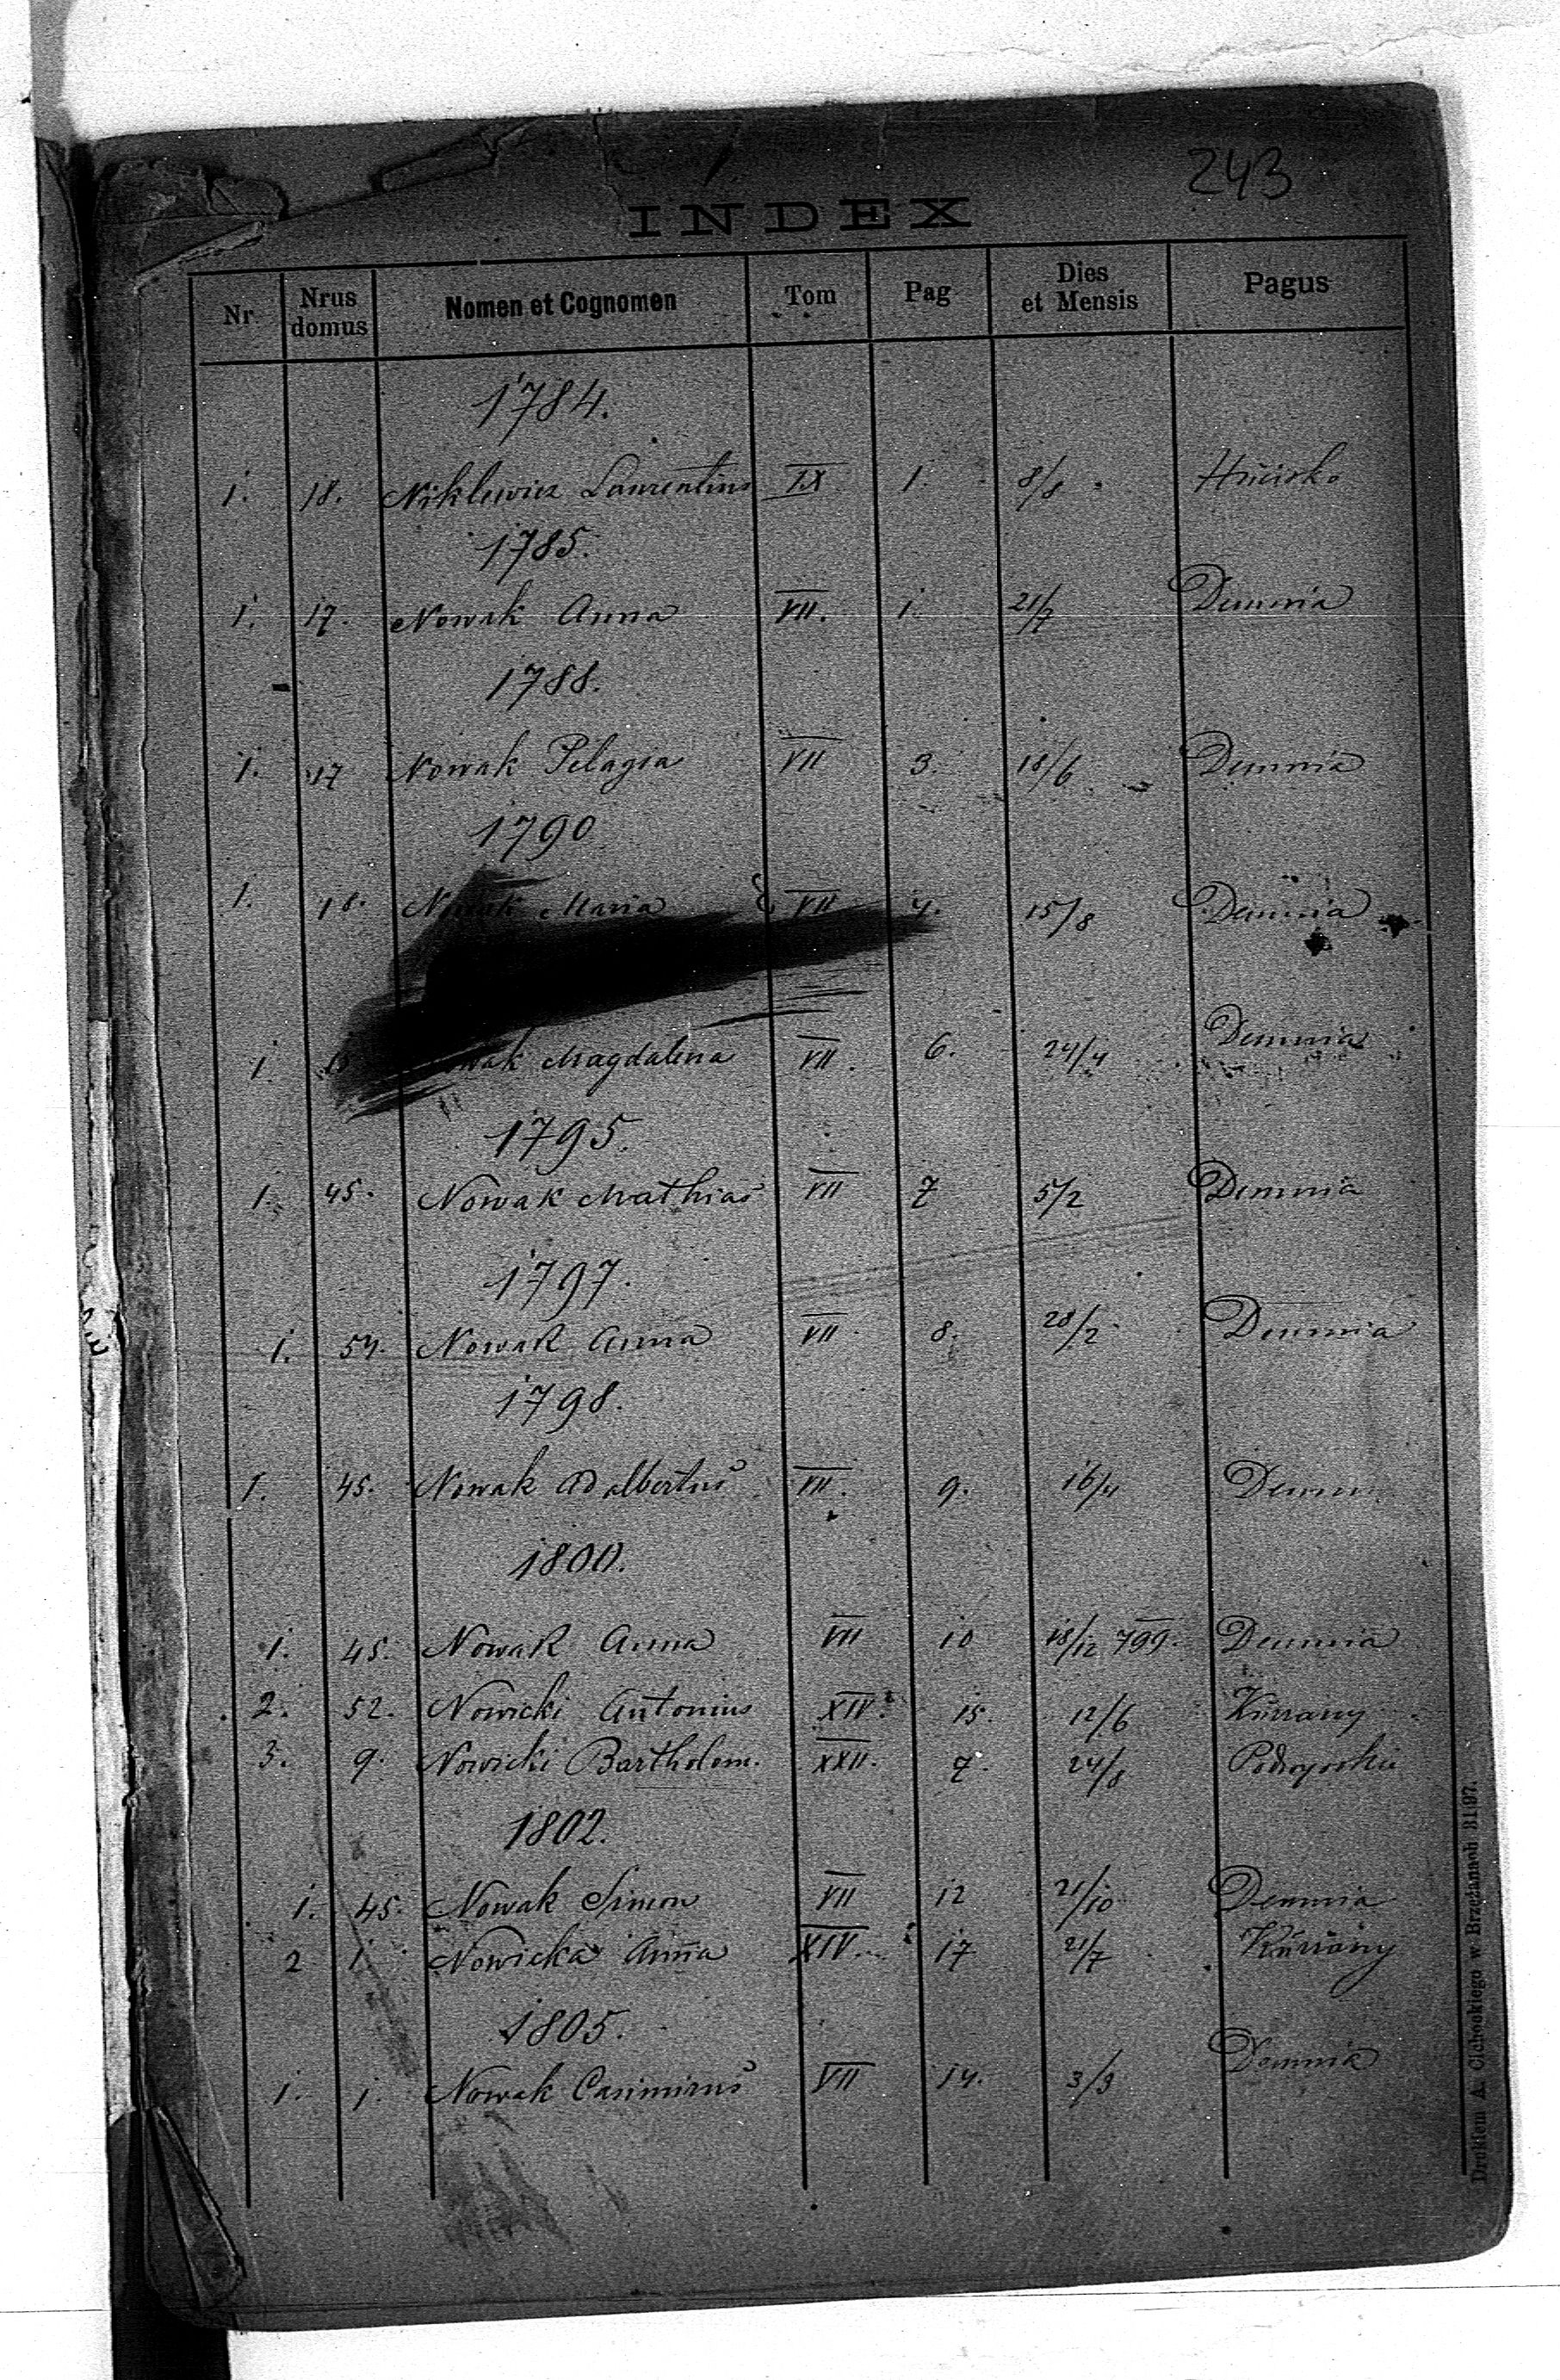 243
INDEX
Nr Nrus domus Nomen et Cognomen Tom Pag Dies et Mensis Pagus
1784.
1. 18. Niklewicz Laurentius IX 1. 8/8 Hucisko
1785.
1. 17. Nowak Anna VII. 1. 21/7 Demnia
1788.
1. 17 Nowak Pelagia VII 3. 18/6 Demnia
1790
1. 18. Nowak Maria VII 4. 15/8 Demnia
1. Nowak Magdalena VII. 6. 24/4 Demnia
1795.
1. 45. Nowak Mathias VII 7 5/2 Demnia
1797.
1. 54. Nowak Anna VII. 8. 28/2 Demnia
1798.
1. 45. Nowak Adalbertus VII. 9. 16/4 Demn
1800.
1. 45. Nowak Anna VII 10 18/12 799. Demnia
2. 52. Nowicki Antonius XIV. 15. 12/6 Kurzany
3. 9. Nowicki Bartholom. XXII. 7. 24/8 Podwysokie
1802.
1. 45. Nowak Simon VII 12 21/10 Demnia
2 1. Nowicka Anna XIV. 17 21/7 Kurzany
1805.
1. 1. Nowak Casimirus VII 14. 3/3 Demnia
Drukiem A. Cichockiego w Brzeżanach 31|97.